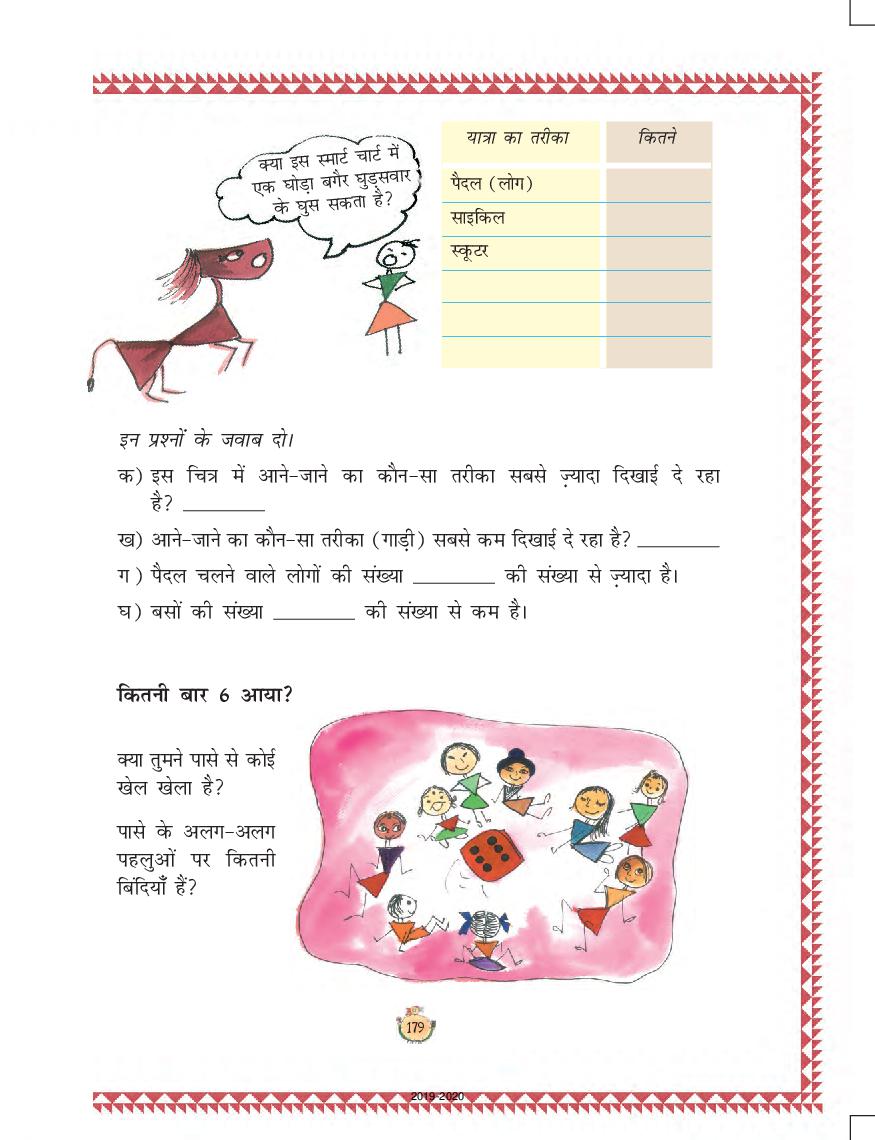 क्या इस स्मार्ट चार्ट में
एक घोड़ा बगैर घुड़सवार
के घुस सकता है?
यात्रा का तरीका कितने
पैदल (लोग)
साइकिल
स्कूटर
इन प्रश्नों के जवाब दो।
क) इस चित्र में आने-जाने का कौन-सा तरीका सबसे ज़्यादा दिखाई दे रहा
है? ________
ख) आने-जाने का कौन-सा तरीका (गाड़ी) सबसे कम दिखाई दे रहा है? ________
ग) पैदल चलने वाले लोगों की संख्या ________ की संख्या से ज़्यादा है।
घ) बसों की संख्या ________ की संख्या से कम है।
कितनी बार 6 आया?
क्या तुमने पासे से कोई
खेल खेला है?
पासे के अलग-अलग
पहलुओं पर कितनी
बिंदियाँ हैं?
179
2019-2020